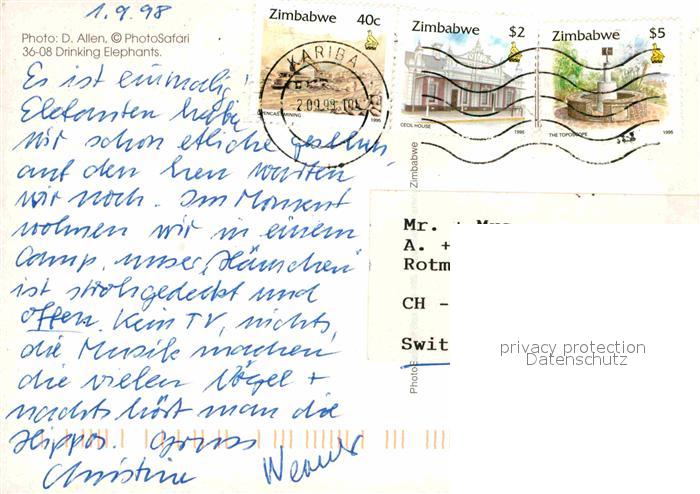 1.9.98
Photo: D. Allen, © PhotoSafari
36-08 Drinking Elephants.
Es ist einmalig!
Elefanten habe
wir schon etliche gesehen,
auf den Leu warten
wir noch. Im Moment
wohnen wir in einem
Camp, unser "Häuschen"
ist strohgedeckt und
offen. Kein TV, nichts,
die Musik machen
die vielen Vögel +
nachts hört man die
Hippos. Gruss
Christine Werner
Zimbabwe 40c
KARIBA
2.09.98
OPENCAST MINING
1995
Zimbabwe $2
CECIL HOUSE 1995
Zimbabwe $5
THE TOPOSCOPE 1995
Zimbabwe
Mr. +
A. +
Rotm
CH -
Swit
privacy protection
Datenschutz